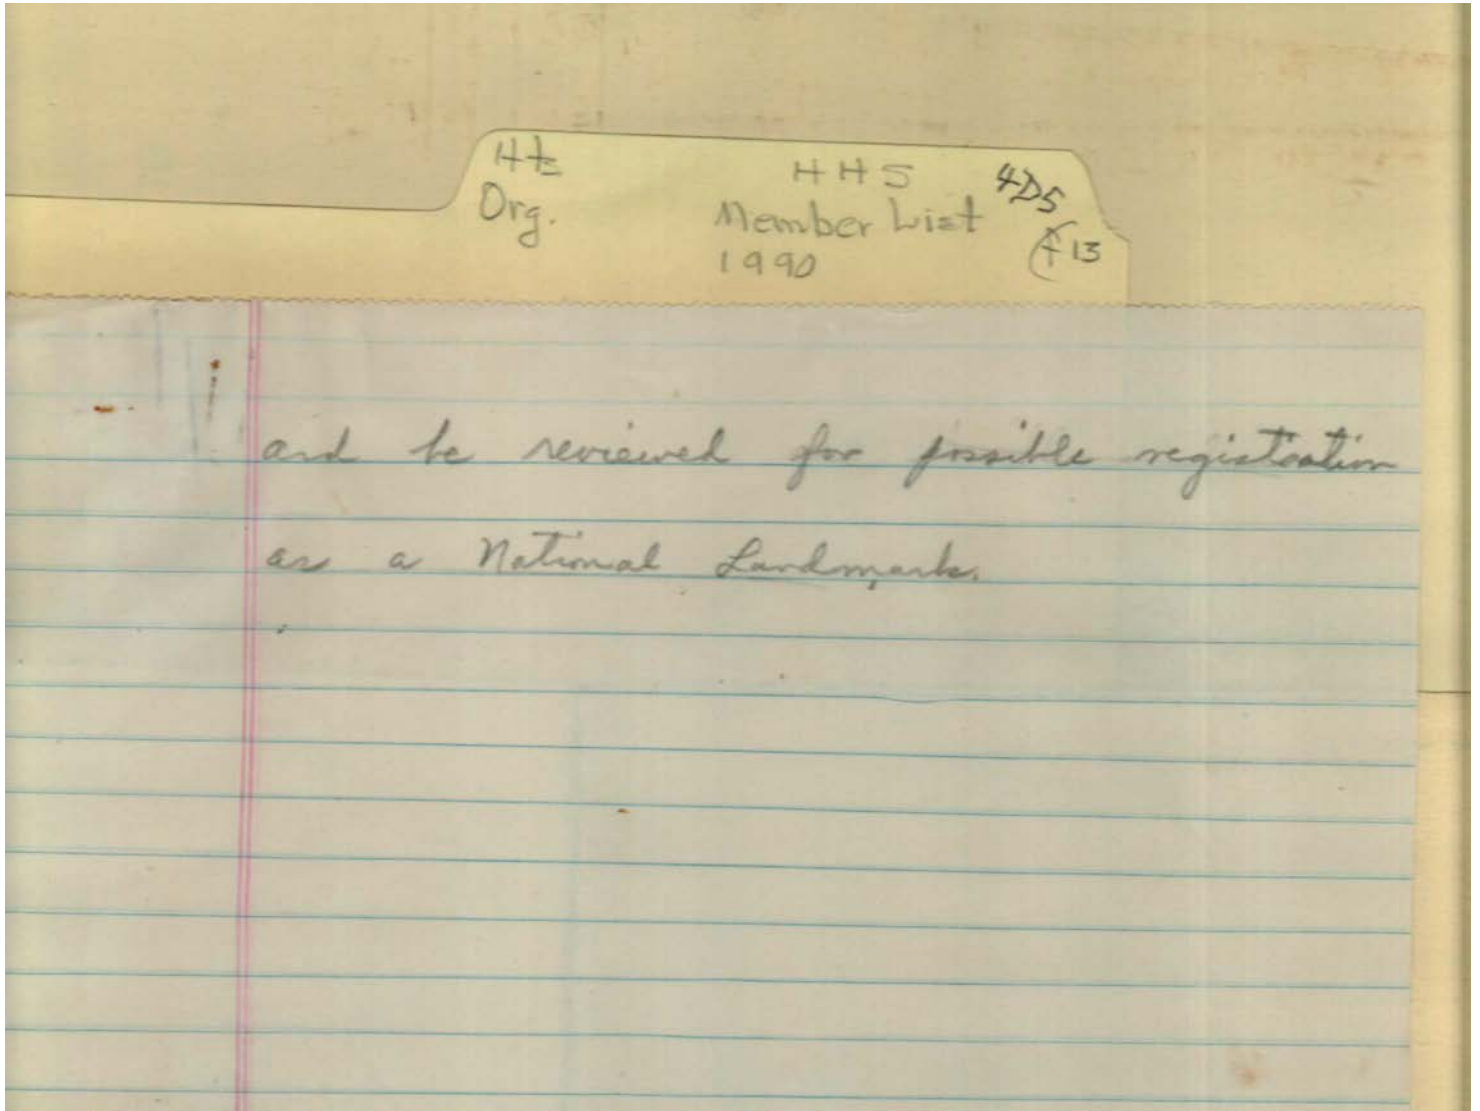 Hts
Org.
HHS
Member List
1990
4D5
f13
and be reviewed for possible registration
as a National Landmark.